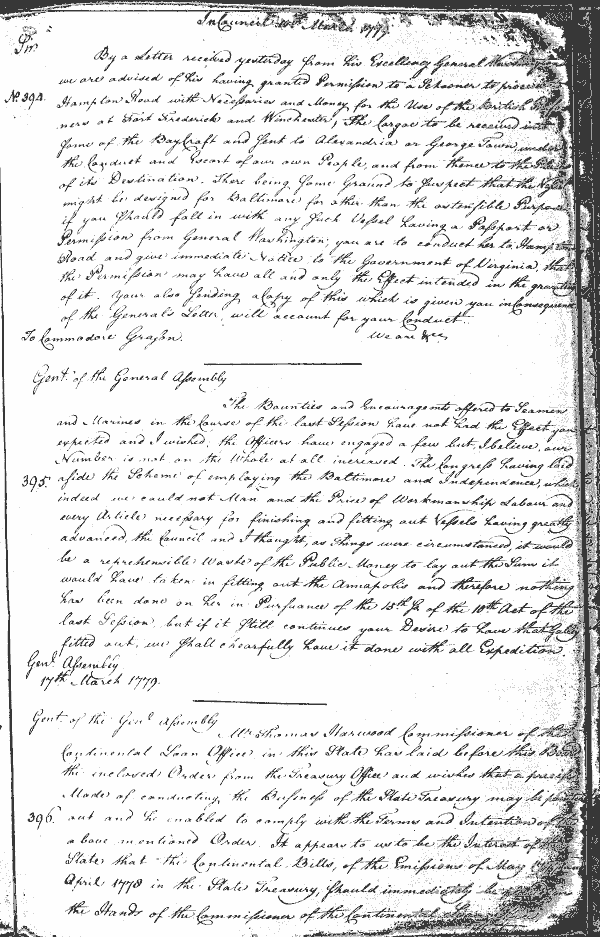 In Council 14th March 1779.
Sir
By a Letter received yesterday from his Excellency General Washington
we are advised of his having granted Permission to a Schooner to proceed
No. 394. Hampton Road with Necessaries and Money, for the Use of the British Priso
ners at Fort Frederick and Winchester, The Cargoe to be received into
some of the BayCraft and sent to Alexandria or George Town, under
the Conduct and Escort of our own People, and from thence to the Places
of its Destination. There being some Ground to suspect that the Vessel
might be designed for Baltimore for other than the ostensible Purpose
if you should fall in with any such Vessel having a Passport or
Permission from General Washington, you are to conduct her to Hampton
Road and give immediate Notice to the Government of Virginia, that
the Permission may have all and only the Effect intended in the granting
of it. Your also sending a Copy of this which is given you in Consequence
of the General's Letter, will account for your Conduct.
To Commodore Grason. We are &ca
Gent. of the General Assembly
The Bounties and Encouragemts offered to Seamen
and Marines in the Course of the last Session have not had the Effect you
expected and I wished, the Officers have engaged a few but, I believe, our
Number is not on the Whole at all increased. The Congress having laid
395. aside the Scheme of employing the Baltimore and Independence, which
indeed we could not Man and the Price of Workmanship Labour and
every Article necessary for finishing and fitting out Vessels having greatly
advanced, the Council and I thought, as Things were circumstanced, it would
be a reprehensible Waste of the Public Money to lay out the Sum it
would have taken in fitting out the Annapolis and therefore nothing
has been done on her in Pursuance of the 15th § of the 10th Act of the
last Session, but if it still continues your Desire to have that Galley
fitted out, we shall chearfully have it done with all Expedition
Genl. Assembly
17th March 1779.
Gent. of the Genl. Assembly
Mr. Thomas Harwood Commissioner of the
Continental Loan Office in this State has laid before this Board
the inclosed Order from the Treasury Office and wishes that a precise
Mode of conducting the Business of the State Treasury may be pointed
396. out and he enabled to comply with the Terms and Intention of the
above mentioned Order. It appears to us to be the Interest of the
State that the Continental Bills, of the Emissions of May
April 1778 in the State Treasury, should immediately be
the Hands of the Commissioner of the Continental Loan